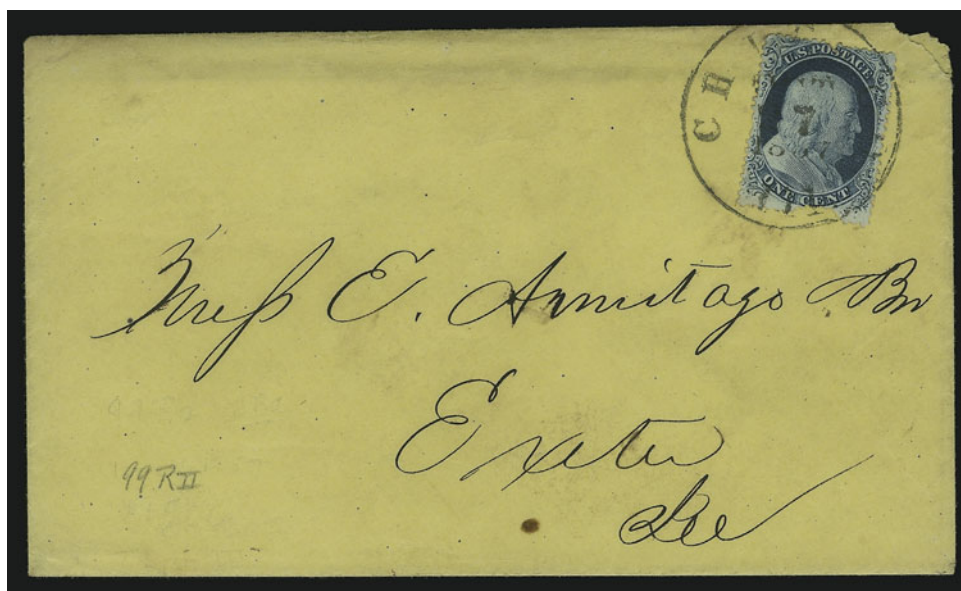 CHI
U.S. POSTAGE
7
ONE CENT
Mess E. Armitage Bro
Exeter
Ill
99 R II